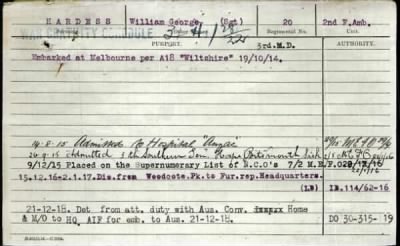 HARDESS William George, (Sgt) 20 2nd F.Amb.
WAR GRATUITY SCHEDULE
PURPORT. Regimental No. Unit.
3rd.M.D. AUTHORITY.
Embarked at Melbourne per A18 "Wiltshire" 19/10/14.
14-8-15 Admitted to Hospital "Anzac"
24.9.15 Admitted 5th Southern Gen. Hosp Portsmouth Sick
9/12/15 Placed on the Supernumerary List of N.C.O's 7/2 M.E.F.
15.12.16-2.1.17.Dis.from Woodcote.Pk.to Fur.rep.Headquarters.
(LB) LB.114/62-16
21-12-18. Det from att. duty with Aus. Conv. Home
& M/D to HQ. AIF for emb. to Aus. 21-12-18. DO 30-315- 19